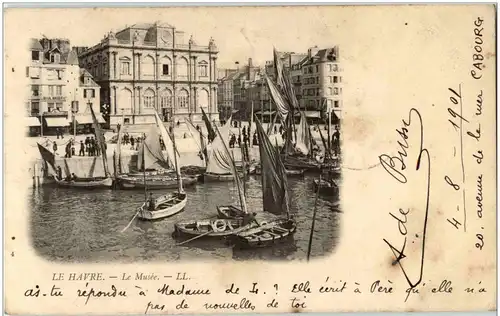 LE HAVRE. – Le Musée. – LL.
as-tu répondu à Madame de L..? Elle écrit à Père qu'elle n'a
pas de nouvelles de toi
A de
4 – 8 – 1901
20, avenue de la mer CABOURG